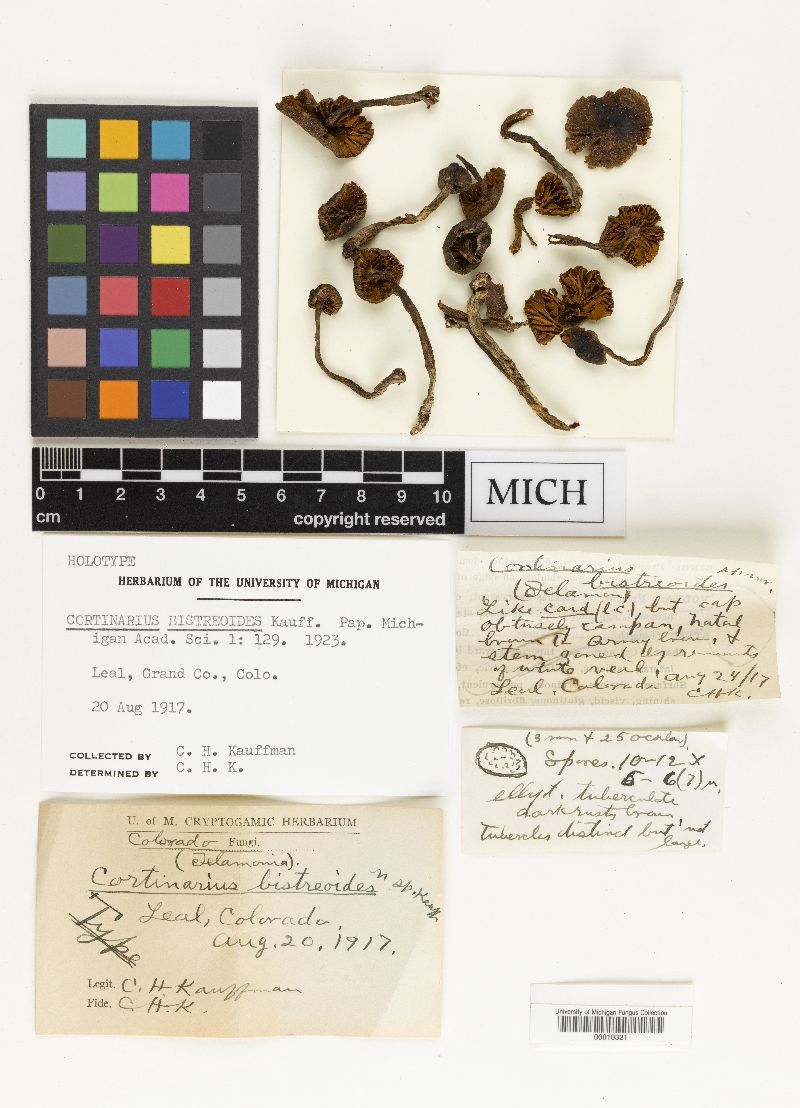 0 1 2 3 4 5 6 7 8 9 10
cm
copyright reserved
MICH
HOLOTYPE
HERBARIUM OF THE UNIVERSITY OF MICHIGAN
CORTINARIUS BISTREOIDES Kauff. Pap. Mich-
igan Acad. Sci. 1: 129. 1923.
Leal, Grand Co., Colo.
20 Aug 1917.
COLLECTED BY C. H. Kauffman
DETERMINED BY C. H. K.
Cortinarius
(Telamon) bistreoides
Like card (lc), but cap
obtusely campan, natal
brown to army brown, &
stem
of white veil! Aug 24/17
Leal. Colorado. CHK.
(3 mm + 25 ocular)
Spores. 10-12 X
6-6(7) µ,
ellipt. tuberculate
dark rusty brown
tubercles distinct but not
large.
U. of M. CRYPTOGAMIC HERBARIUM
Colorado Fungi.
(Telamonia).
Cortinarius bistreoides n sp. Kauff
Leal, Colorado.
Type
Aug. 20, 1917.
Legit. C. H Kauffman
Fide. C. H. K.
University of Michigan Fungus Collection
00010321